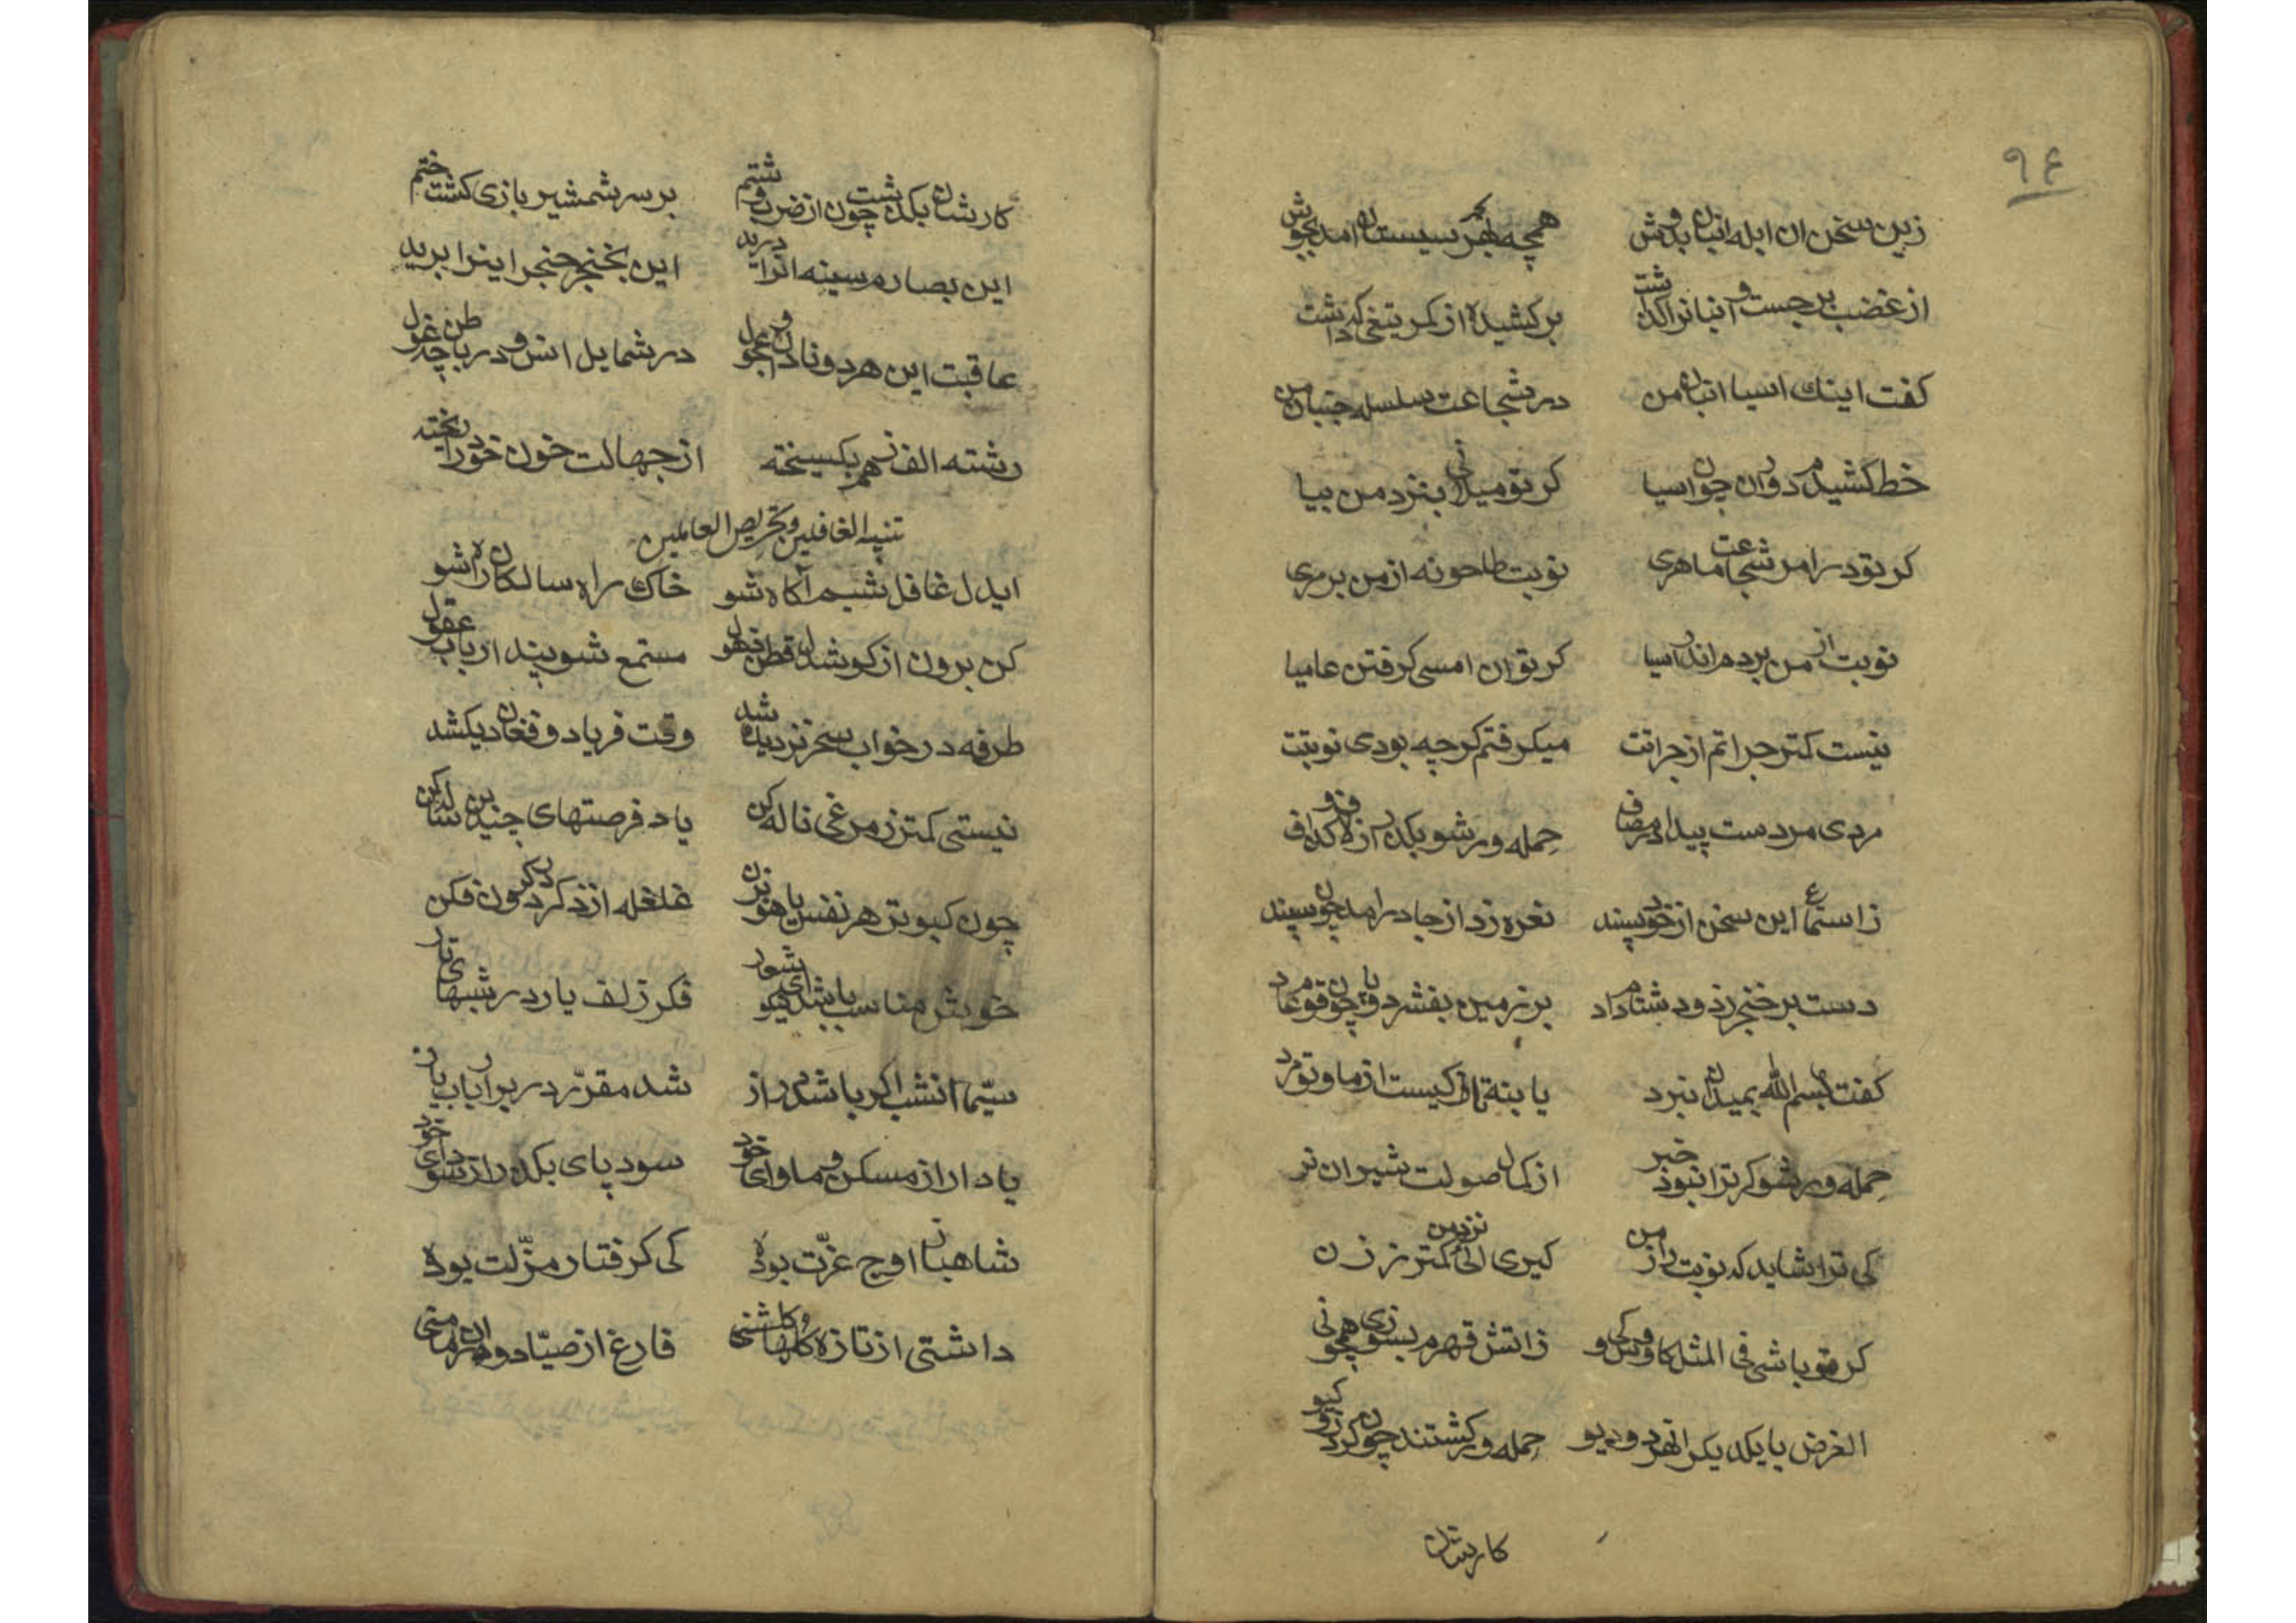 ۹۴
زین سخن ان ابله انبان بدوش همچه بحر سیستان امد بجوش
از غضب برجست و آنبانرا گذاشت برکشیده از کمر تیغی که داشت
کفت اینك اسیا انبان من در شجاعت سلسله جنبان من
خط کشیدم دور ان چون اسیا کر تو میدانی بنزد من بیا
کر تو در امر شجاعت ماهری نوبت طاحونه از من برمری
نوبت از من بردم اندر اسیا کر توان امسی کرفتن عامیا
نیست کتر جراتم از جراتت میکرفتم کرچه بودی نوبتت
مردی مردست پیدا در مصاف حمله ور شو بکذر از لاف و کذاف
زاستماع این سخن از خود پسند نعره زد از جا درامد چون سپند
دست بر خنجر زد و دشنام داد بر زمین بفشرد پا چون قوم عاد
کفت بسم الله بمیدان نبرد تا کیست از ما و تو مرد
حمله ور شو کر ترا نبود خبر از کمال صولت شیران نر
کی ترا شاید که نوبت را ز من کیری ای نزد من کمتر ز زن
کر تو باشی فی المثل کاوس کی و زاتش قهرم بسوزی همچو نی
الغرض با یکدیکر انهر دو دیو حمله ور کشتند چون کرد و کیو
کارشان
کارشان بکذشت چون از ضرب و شتم بر سر شمشیر بازی کشت ختم
این بصارم سینه انرا درید این بخنجر حنجر اینرا برید
عاقبت این هر دو نادان عجول در شمایل انس و در باطن چه غول
رشته الف ز هم بکسیخته از جهالت خون خود را ریخته
تنبیه الغافلین و تحریص العاملین
ایدل غافل شبی آکاه شو خاك راه سالکان راه شو
کن برون از کوش دل قطن قهول مستمع شو پند ارباب عقول
طرفه در خواب سحر نردیده شد وقت فریاد و فغان دیکشد
نیستی کمتر ز مرغی ناله کن یاد فرصتهای چندین ساله کن
چون کبوتر هر نفس یاهو بزن غلغله از ذکر در کون فکن
خویش مناسب باشد ای بیشعور فکر زلف یار در شبهای تار
سیّما انشب اکر باشد دراز شد مقرّر در برار باب یاز
یاد ار از مسکن و ماوای خود سود پای بکذر از سودای خود
شاهباز اوج عزّت بودۀ کی کرفتار مزّلت بودۀ
داشتی از تازه کلها کلشنی فارغ از صیّاد دوران مامنی